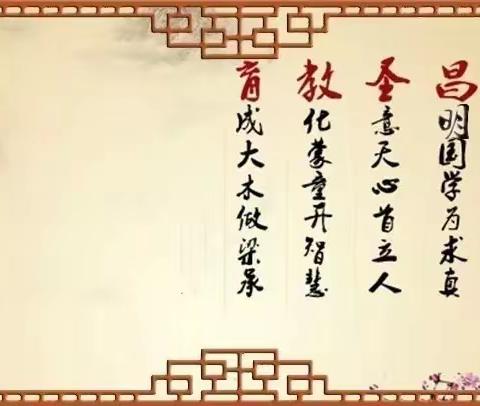 昌明国学为求真
圣意天心首立人
教化蒙童开智慧
育成大木做梁承